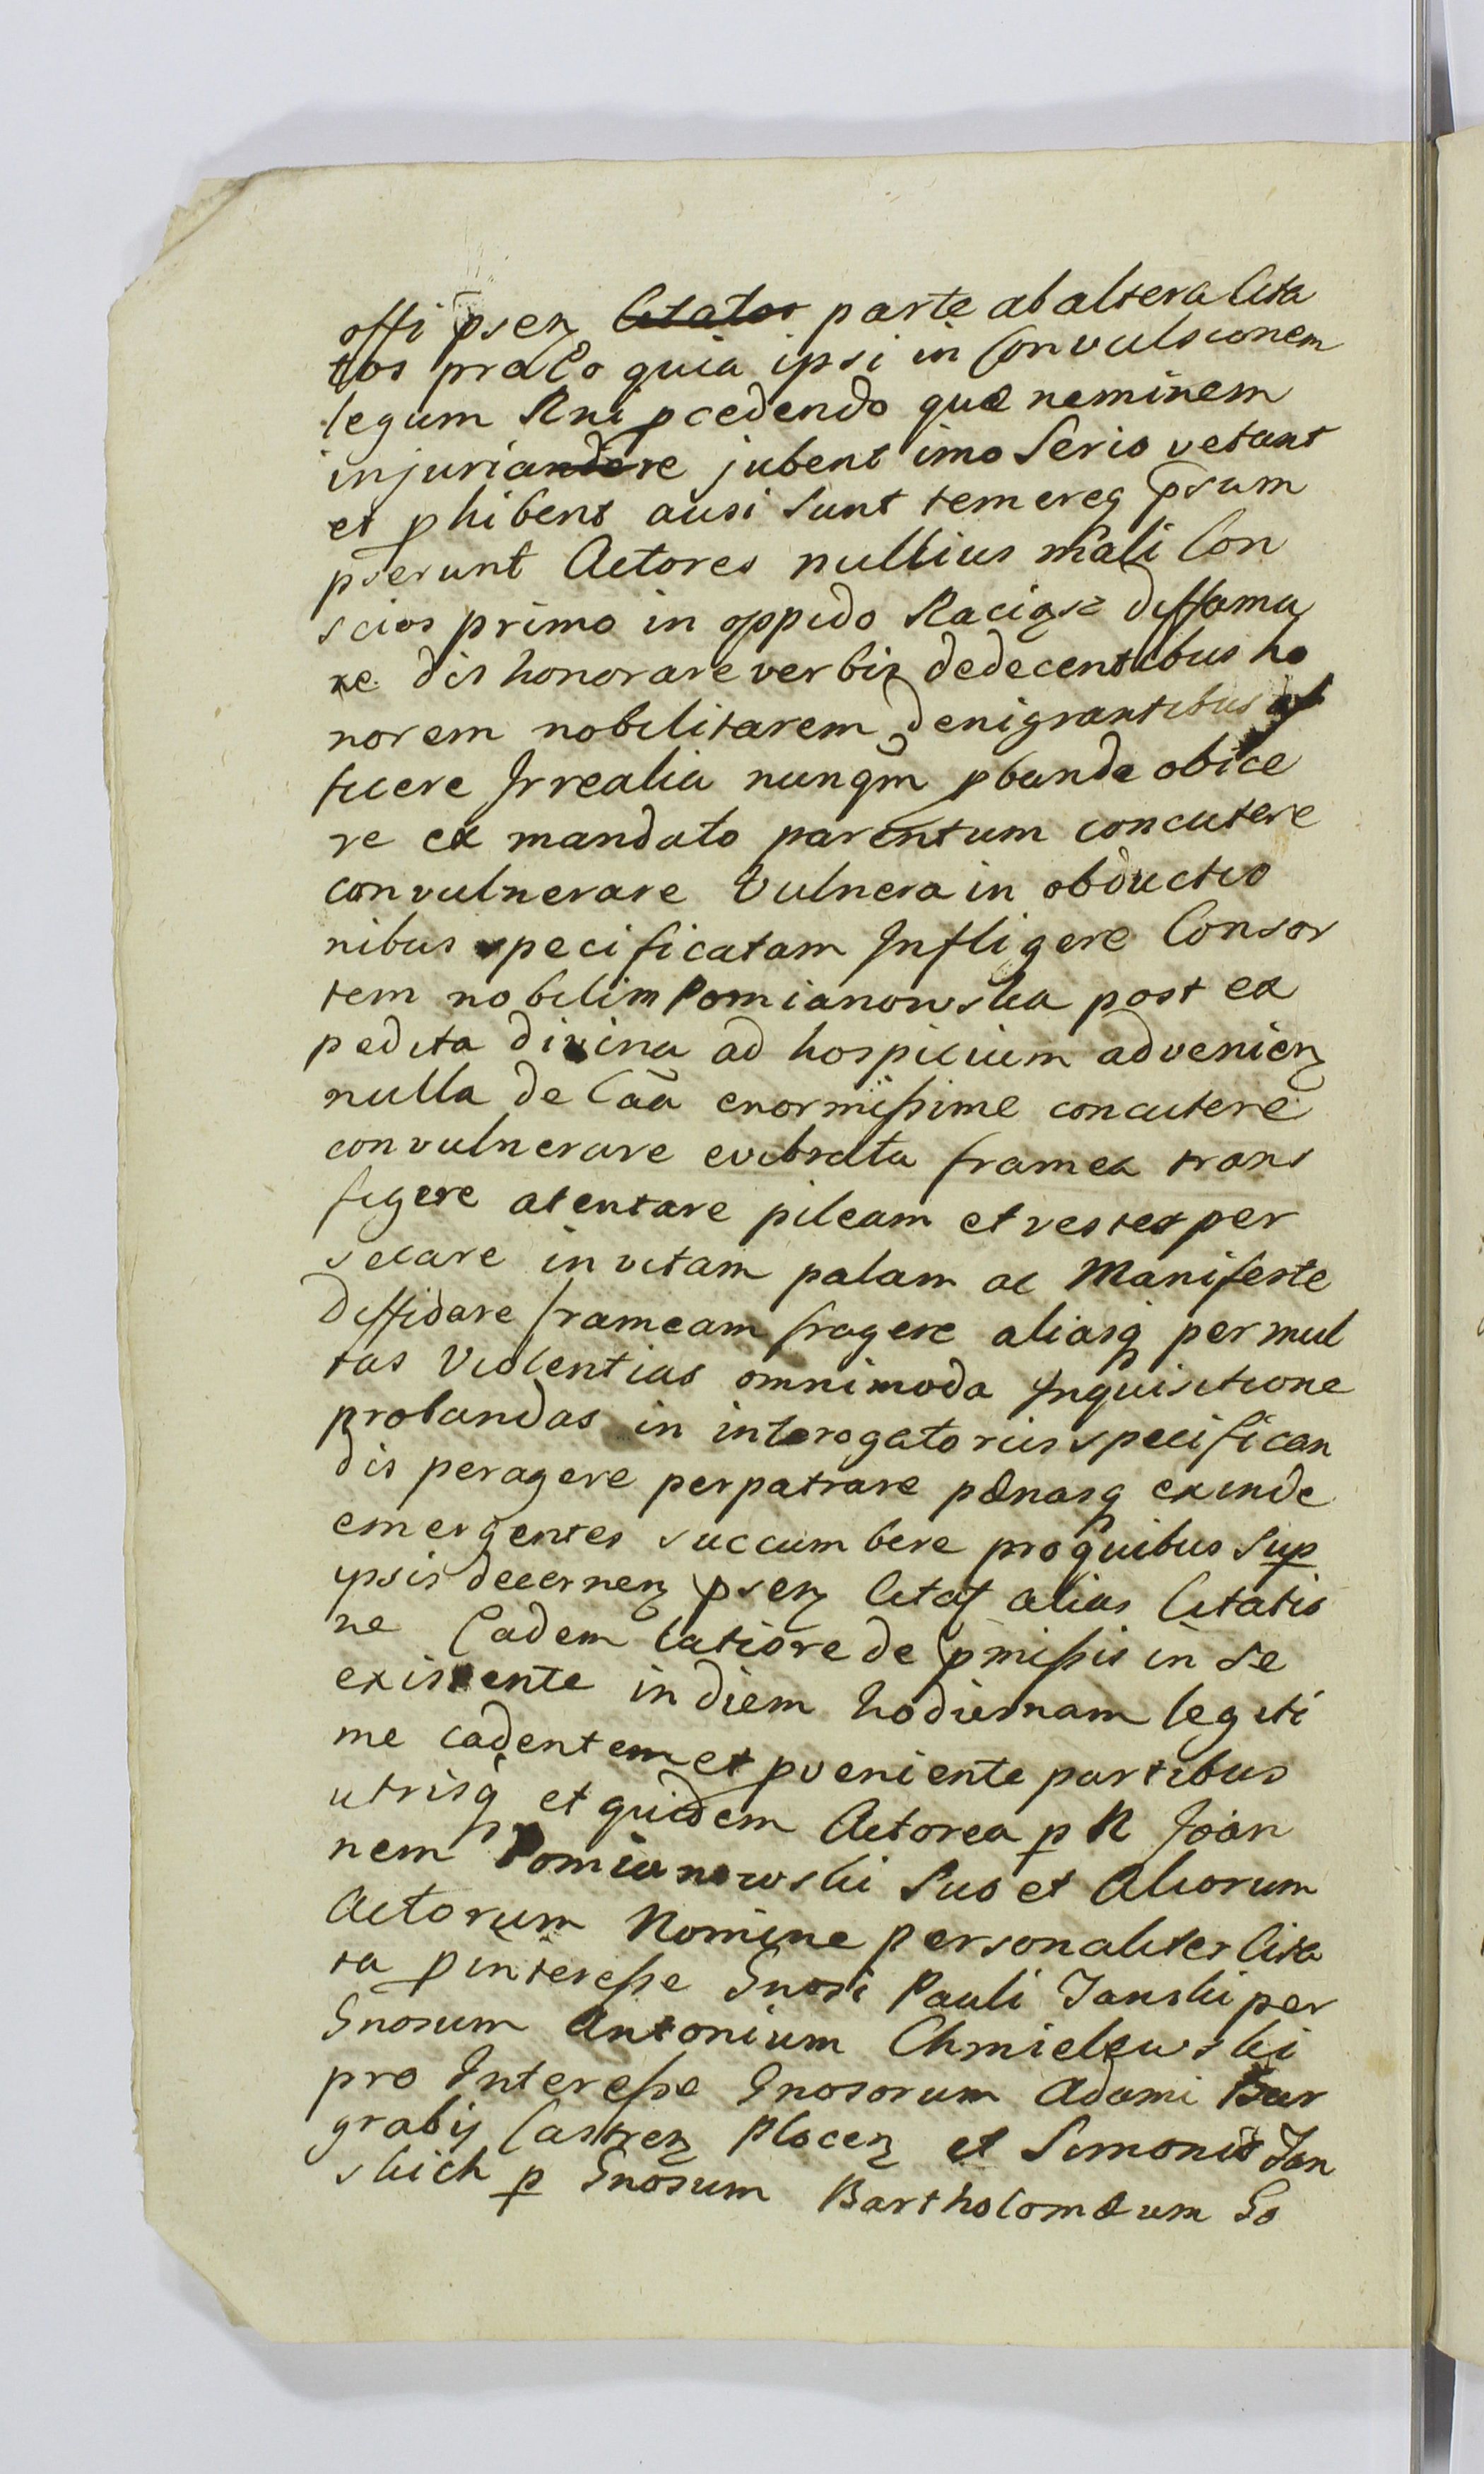 offi psen Citatos parte ab altera Cita
tos pro Eo quia ipsi in Convulsionem
legum Rni pcedendo quæ neminem
injuriandere jubent imo Serio vetant
et phibent ausi sunt temereq psum
pserunt Actores nullius mali Con
scios primo in oppido Raciąz diffama
re dis honorare verbis dedecentibus ho
norem nobilitarem denigrantibus af
ficere Irrealia nunqm pbanda obice
re ex mandato parentum concutere
convulnerare Vulnera in obductio
nibus specificatam Infligere Consor
tem nobilim Pomianowska post ex
pedita divina ad hospicium advenien
nulla de Caã enormissime concutere
convulnerare evibrata framea trans
figere atentare pileam et vestes per
secare in vitam palam ac Manifeste
diffidare frameam fragere aliasq permul
tas Violentias omnimoda Inquisitione
probandas in interogatoriis specifican
dis peragere perpatrare pænasq exinde
emergentes succumbere pro quibus sup
ipsis decernen psen Citat alias Citatio
ne Eadem latiore de pmissis in se
existente in diem hodiernam legiti
me cadentem et pveniente partibus
utrisq et quidem Actorea p N Joan
nem Pomianowski Suo et Aliorum
Actorum Nomine personaliter Cita
ta p interesse Gnosi Pauli Janski per
Gnosum Antonium Chmielewski
pro Interesse Gnosorum Adami Bur
grabij Castren Plocen et Simonis Jan
skich p Gnosum Bartholomæum Go